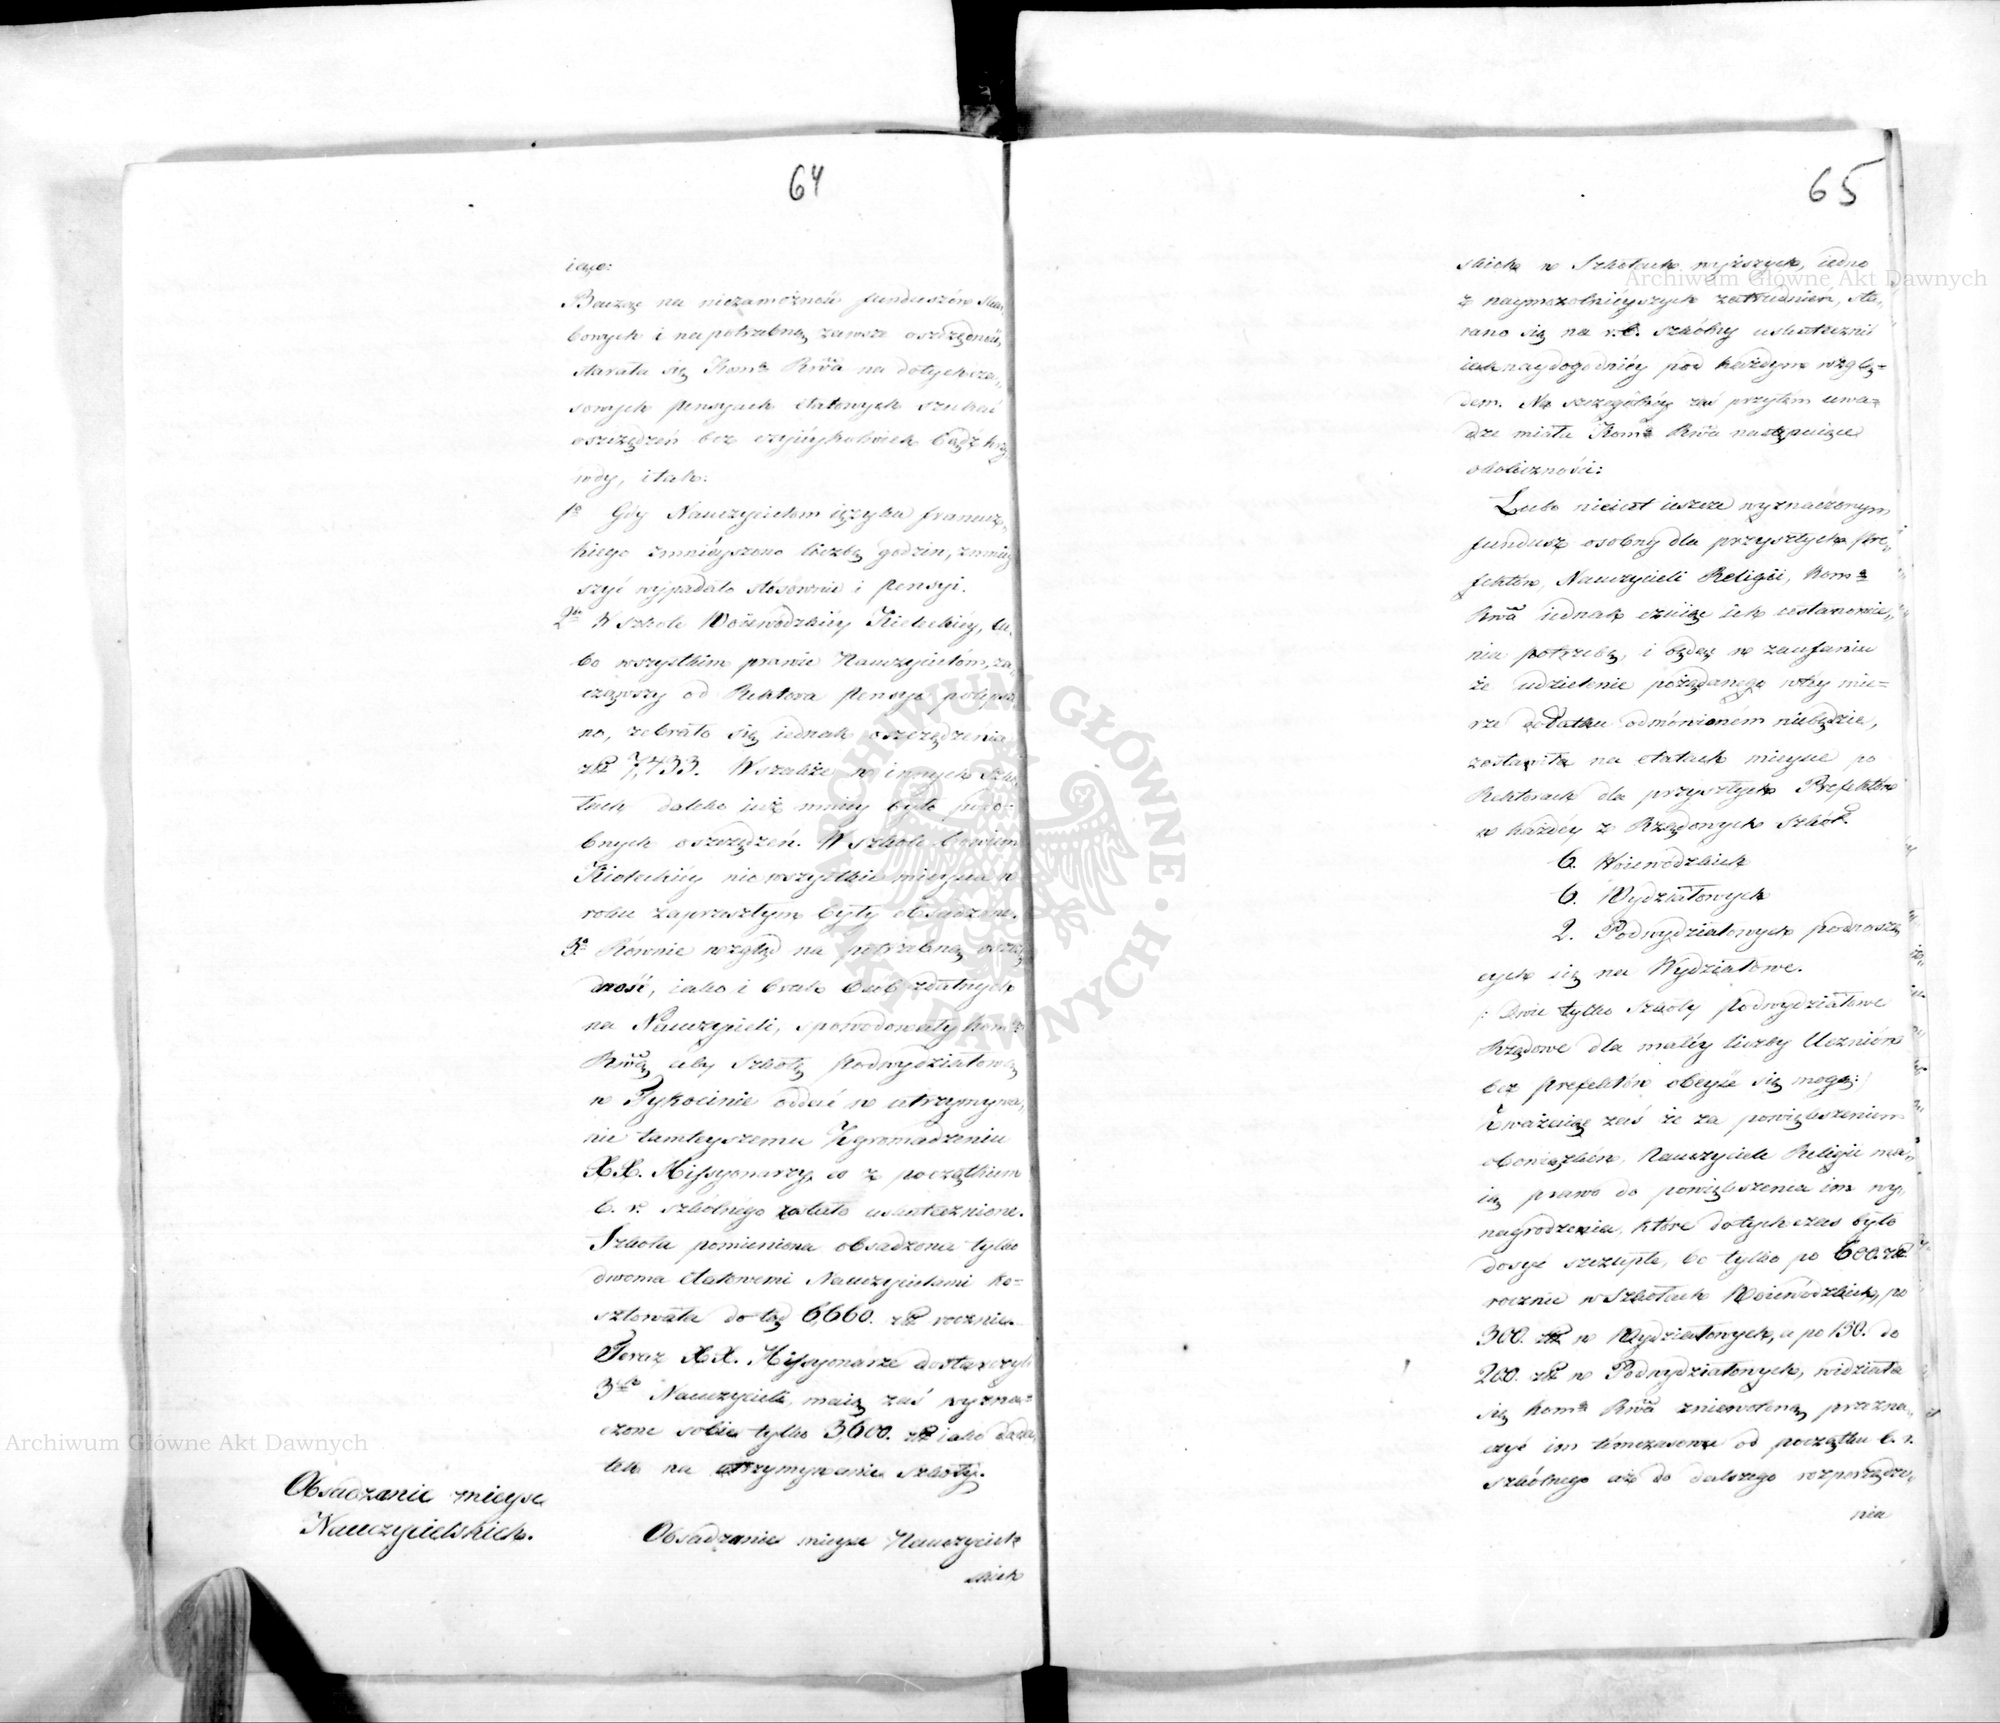 64
iące:
Bacząc na niezamożność funduszów Skar„
bowych i na potrzebną zawsze oszczędność,
starała się Komª Rwa na dotychcza„
sowych pensyach etatowych szukać
oszczędzeń bez czyjéjkolwiek bądź krzy„
wdy, i tak:
1º Gdy Nauczycielom ięzyka francuz„
kiego zmnieyszono liczbę godzin, zmniey
szyć wypadało stosownie i pensyi.
2do W Szkole Woiewódzkiéy Kieleckiéy, lu„
bo wszystkim prawie Nauczycielom, za„
cząwszy od Rektora pensye polepszo
no, zebrało się iednak oszczędzenia
złp 7,433. Wszakże w innych Szko
łach daleko iuż mniéy było podo„
bnych oszczędzeń. W szkole bowiem
Kieleckiéy nie wszystkie mieysca w
roku zaprzeszłym były obsadzone.
3º Równie wzgląd na potrzebną oszczę
dność, iako i brak osób zdatnych
na Nauczycieli, spowodowały Komª
Rwą, aby Szkołę Podwydziałową
w Tykocinie oddać w utrzymywa„
nie tamteyszemu Zgromadzeniu
XX. Missyonarzy, co z początkiem
b. r. szkólnego zostało uskutecznione.
Szkoła pomieniona obsadzona tylko
dwoma etatowemi Nauczycielami ko„
sztowała dotąd 6,660. złp rocznie.
Teraz XX. Missyonarze dostarczyli
3ch Nauczycieli, maią zaś wyzna„
czone sobie tylko 3,600. złp iako doda„
tek na utrzymywanie szkoły.
Obsadzanie mieysc
Nauczycielskich.
Obsadzanie mieysc Nauczyciel
skich
65
skich w Szkołach wyższych, iedno
z naymozolnieyszych zatrudnień, sta„
rano się na r. b. szkólny uskutecznić
iak naydogodniéy pod każdym wzglę„
dem. Na szczególnéy zaś przytém uwa„
dze miała Komª Rwa następuiące
okoliczności:
Lubo nie iest ieszcze wyznaczonym
fundusz osobny dla przyszłych Pre„
fektów, Nauczycieli Religii, Komª
Rwa iednak czuiąc ich ustanowie„
nia potrzebę, i będąc w zaufaniu
że udzielenie pożądanego w téy mie„
rze dodatku odmówioném niebędzie,
zostawiła na etatach mieysce po
Rektorach dla przyszłych Prefektów
w każdéy z Rządowych Szkół.
6. Woiewódzkich
6. Wydziałowych
2. Podwydziałowych podnoszą
cych się na Wydziałowe.
/: Dwie tylko szkoły Podwydziałowe
Rządowe dla małéy liczby Uczniów
bez prefektów obeyść się mogą:/
Zważaiąc zaś że za powiększeniem
obowiązków, Nauczyciele Religii ma„
ią prawo do powiększenia im wy„
nagrodzenia, które dotychczas było
dosyć szczupłe, bo tylko po 600. złp
rocznie w Szkołach Woiewódzkich, po
300. złp w Wydziałowych, a po 150. do
200. złp w Podwydziałowych, widziała
się Komª Rwa zniewoloną przezna„
czyć im tymczasowo od początku b. r.
szkólnego aż do dalszego rozporządze„
nia
Archiwum Główne Akt Dawnych
Archiwum Główne Akt Dawnych
ARCHIWUM GŁÓWNE AKT DAWNYCH